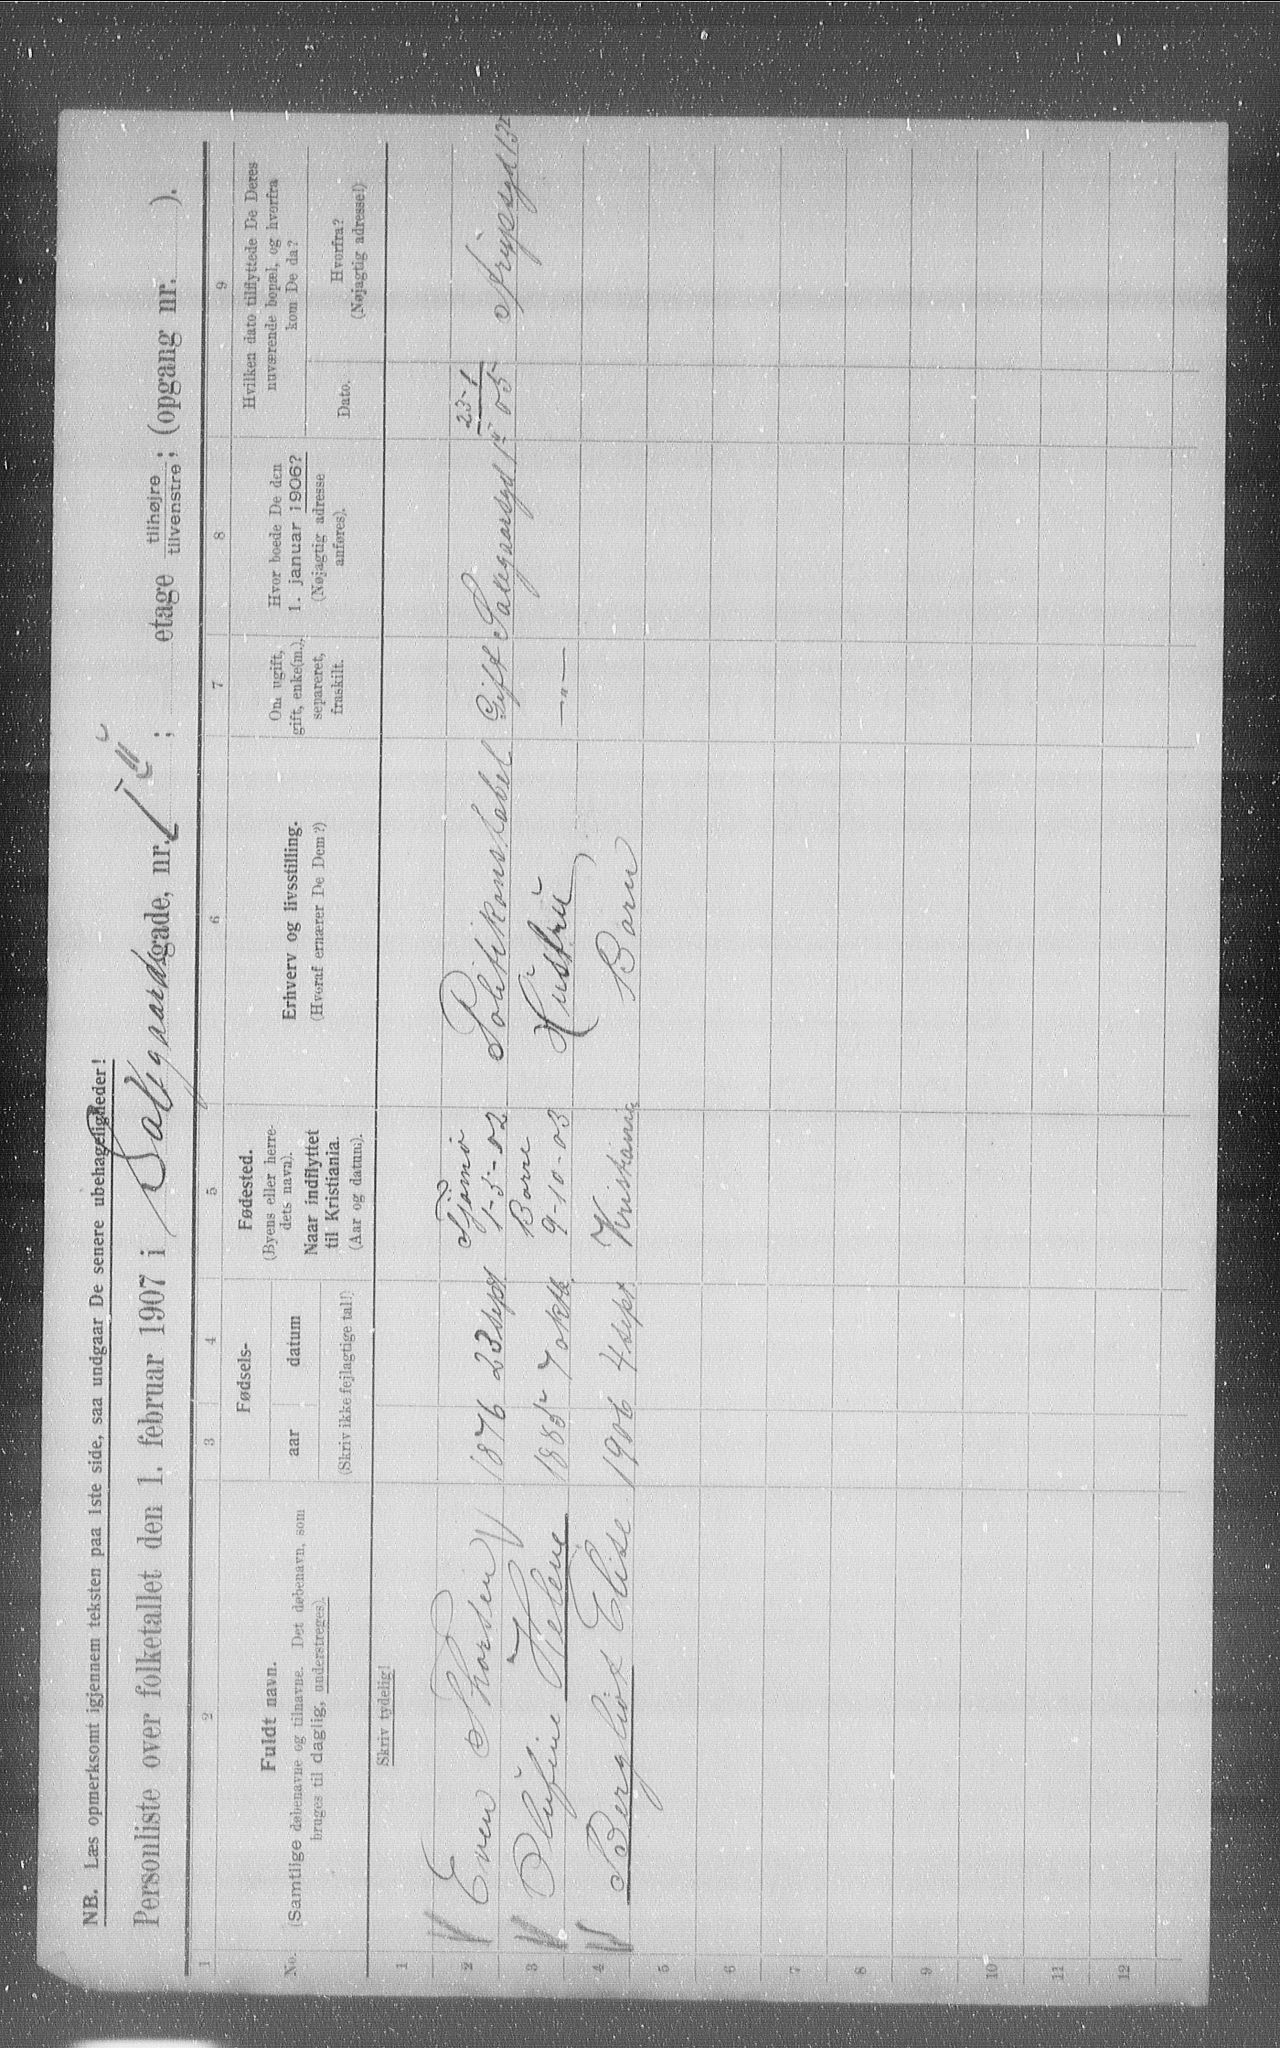 NB. Læs opmerksomt igjennem teksten paa 1ste side, saa undgaar De senere ubehageligheder!
Personliste over folketallet den 1. februar 1907 i Sallegaardsgade, nr. 1 ; etage tilhøjre tilvenstre; (opgang nr. ).
1 2 3 4 5 6 7 8 9
No.
Fuldt navn.
(Samtlige døbenavne og tilnavne. Det døbenavn, som
bruges til daglig, understreges).
Fødsels-
aar datum
(Skriv ikke fejlagtige tal!)
Fødested.
(Byens eller herre-
dets navn).
Naar indflyttet
til Kristiania.
(Aar og datum).
Erhverv og livsstilling.
(Hvoraf ernærer De Dem?)
Om ugift,
gift, enke(m.),
separeret,
fraskilt.
Hvor boede De den
1. januar 1906?
(Nøjagtig adresse
anføres).
Hvilken dato tilflyttede De Deres
nuværende bopæl, og hvorfra
kom De da?
Dato.
Hvorfra?
(Nøjagtig adresse!)
Skriv tydelig!
1
2 Even Thorsen 1876 23 sept Tjømø 1-5-02 Politikonstabel Gift Sallegaardsgd 1 23-1 05
3 Olufine Helene 1885 7 oktb. Borre 9-10-03 Hustru —"—
4 Bergliot Elise 1906 4 sept Kristiania Barn
5
6
7
8
9
10
11
12